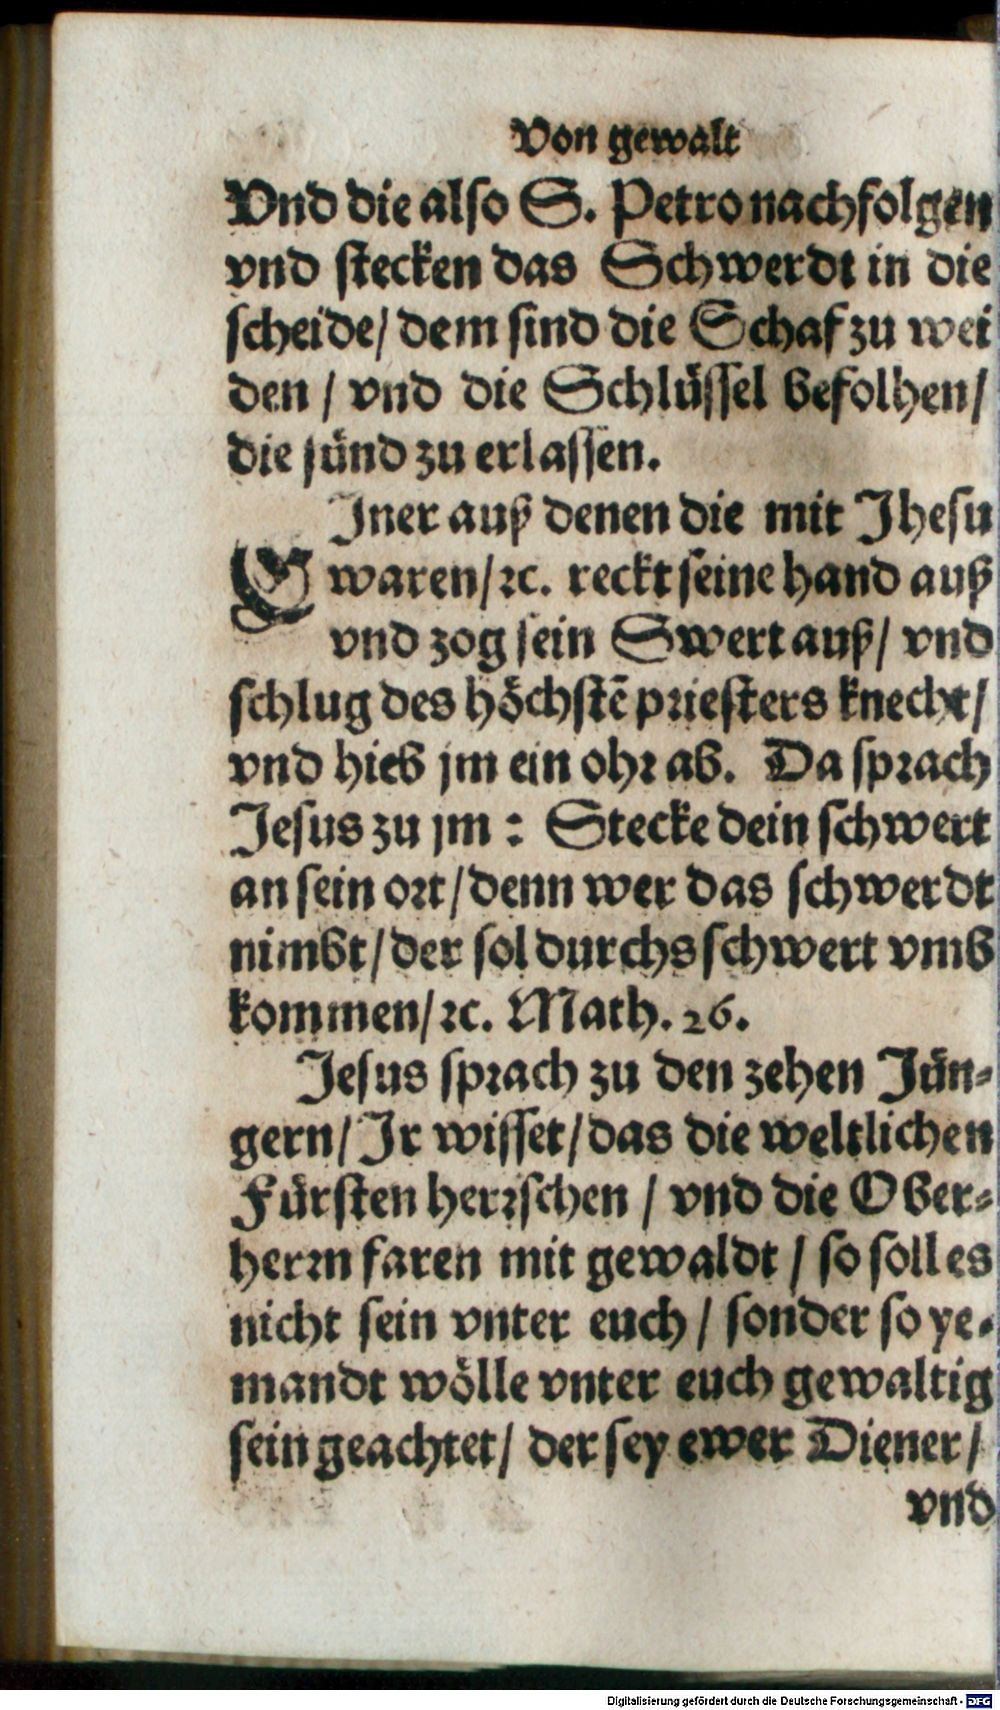 Von gewalt
Vnd die also S. Petro nachfolgen
vnd stecken das Schwerdt in die
scheide/ dem sind die Schaf zu wei
den / vnd die Schlüssel befolhen/
die sünd zu erlassen.
EJner auß denen die mit Jhesu
waren/ꝛc. reckt seine hand auß
vnd zog sein Swert auß/ vnd
schlug des höchstẽ priesters knecht/
vnd hieb jm ein ohr ab. Da sprach
Jesus zu jm : Stecke dein schwert
an sein ort/denn wer das schwerdt
nimbt/der sol durchs schwert vmb
kommen/ꝛc. Math. 26.
Jesus sprach zu den zehen Jün-
gern/ Jr wisset/das die weltlichen
Fürsten herrschen / vnd die Ober-
herrn faren mit gewaldt / so soll es
nicht sein vnter euch / sonder so ye-
mandt wölle vnter euch gewaltig
sein geachtet/ der sey ewer Diener/
vnd
Digitalisierung gefördert durch die Deutsche Forschungsgemeinschaft - DFG